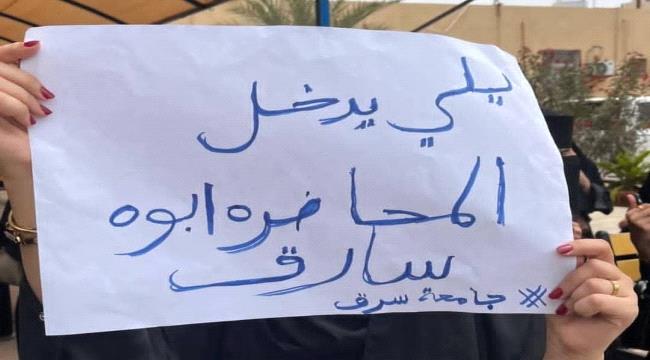 يلي يدخل
المحاضره ابوه
سارق
# جامعة سرق